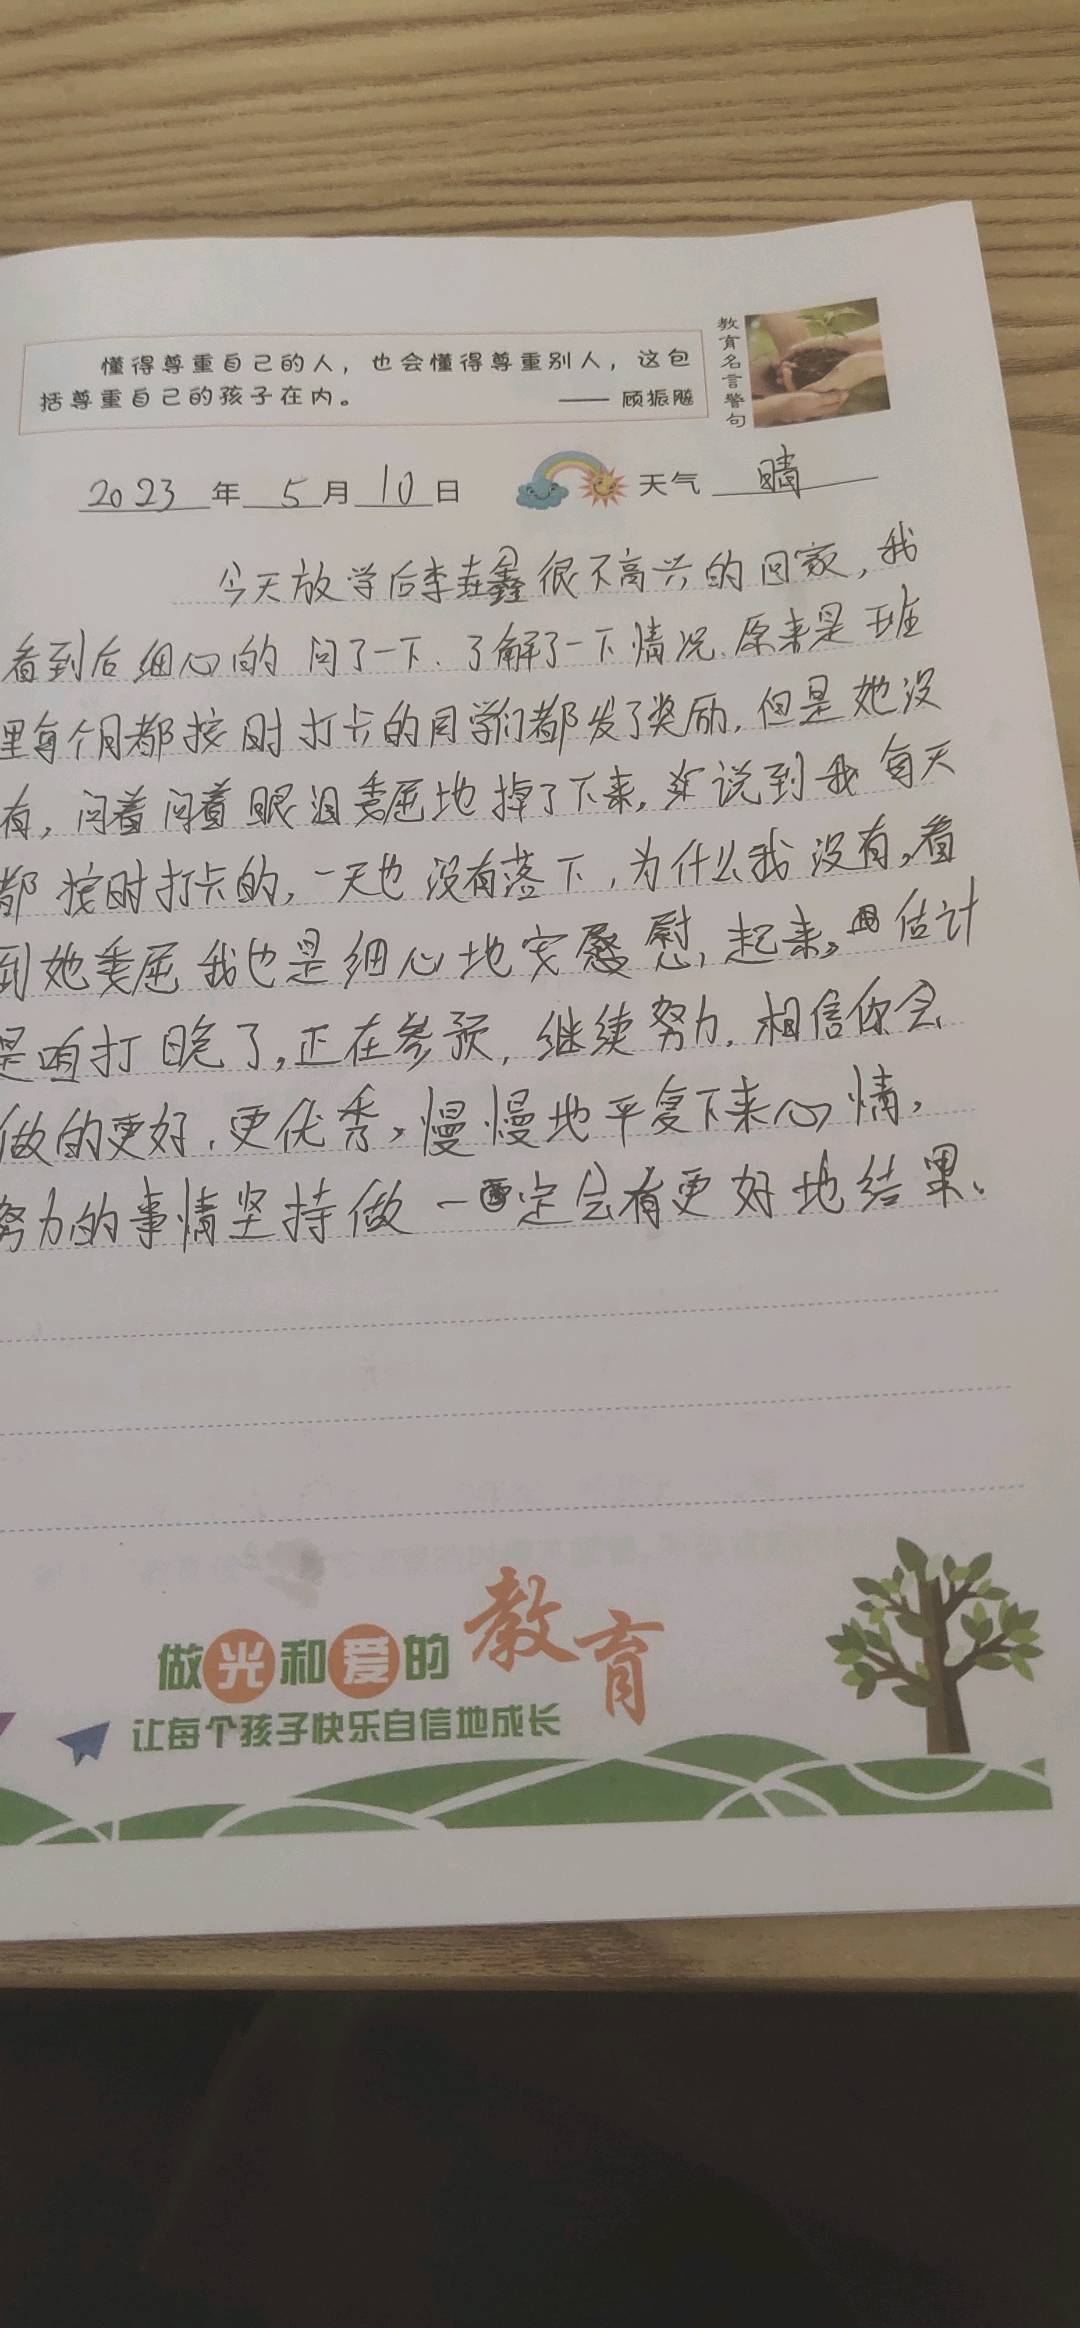 懂得尊重自己的人，也会懂得尊重别人，这包
括尊重自己的孩子在内。 —— 顾振飚
教育名言警句
2023年5月10日 天气 晴
今天放学后李垚鑫很不高兴的回家，我
看到后细心的问了一下、了解了一下情况.原来是班
里每个月都按时打卡的同学们都发了奖励,但是她没
有，问着问着眼泪委屈地掉了下来,说到我每天
都按时打卡的,一天也没有落下,为什么我没有,看
到她委屈我也是细心地安慰起来,估计
是咱打晚了,正在参预,继续努力.相信你会
做的更好.更优秀,慢慢地平复下来心情,
努力的事情坚持做一定会有更好地结果.
做光和爱的教育
让每个孩子快乐自信地成长